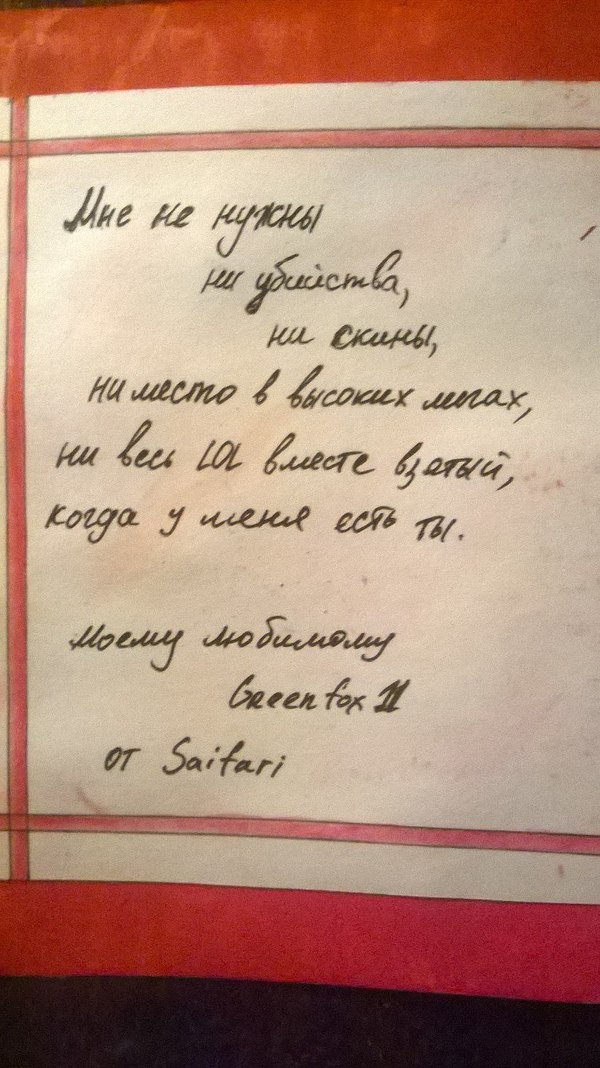 Мне не нужны
ни убийства,
ни скины,
ни место в высоких лигах,
ни весь LOL вместе взятый,
когда у меня есть ты.
Моему любимому
Greenfox11
от Saifari